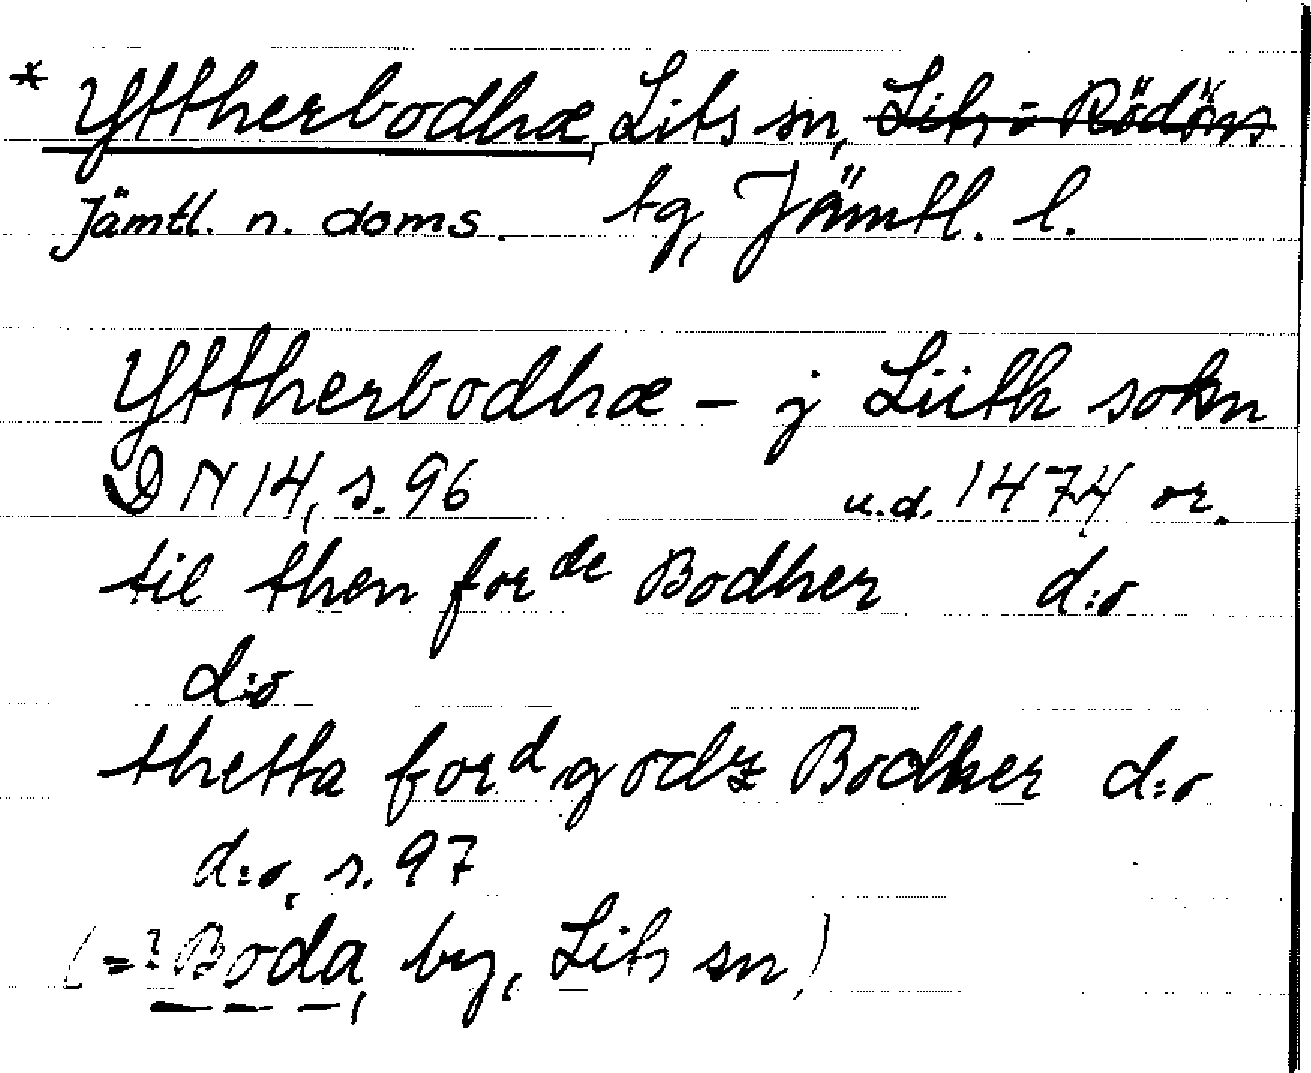 * Yttherbodhæ, Lits sn, Lits o Rödöns
Jämtl. n. doms. tg, Jämtl. l.
Yttherbodhæ – j Liith sokn
DN 14, s. 96 u.d. 1474 or.
til then forde Bodher d:o
d:o
thetta ford godz Bodher d:o
d:o, s. 97
(=? Boda, by, Lits sn)